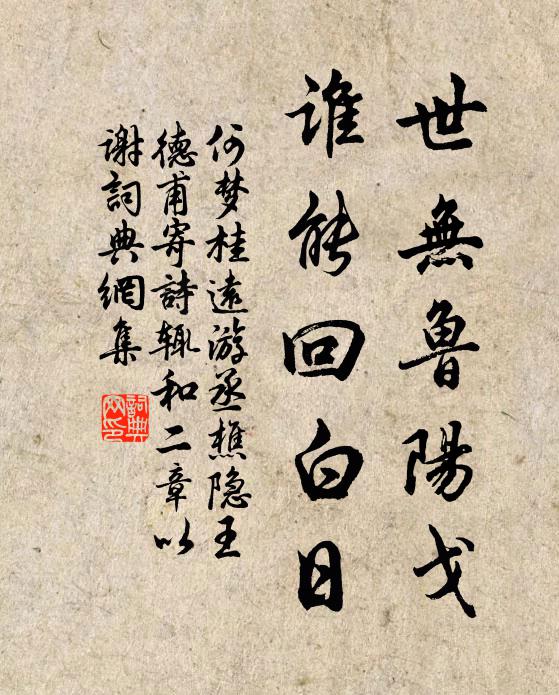 世無魯陽戈
誰能回白日
何梦桂遠游丞樵隐王
德甫寄詩辄和二章以
謝詞典網集
詞典网印